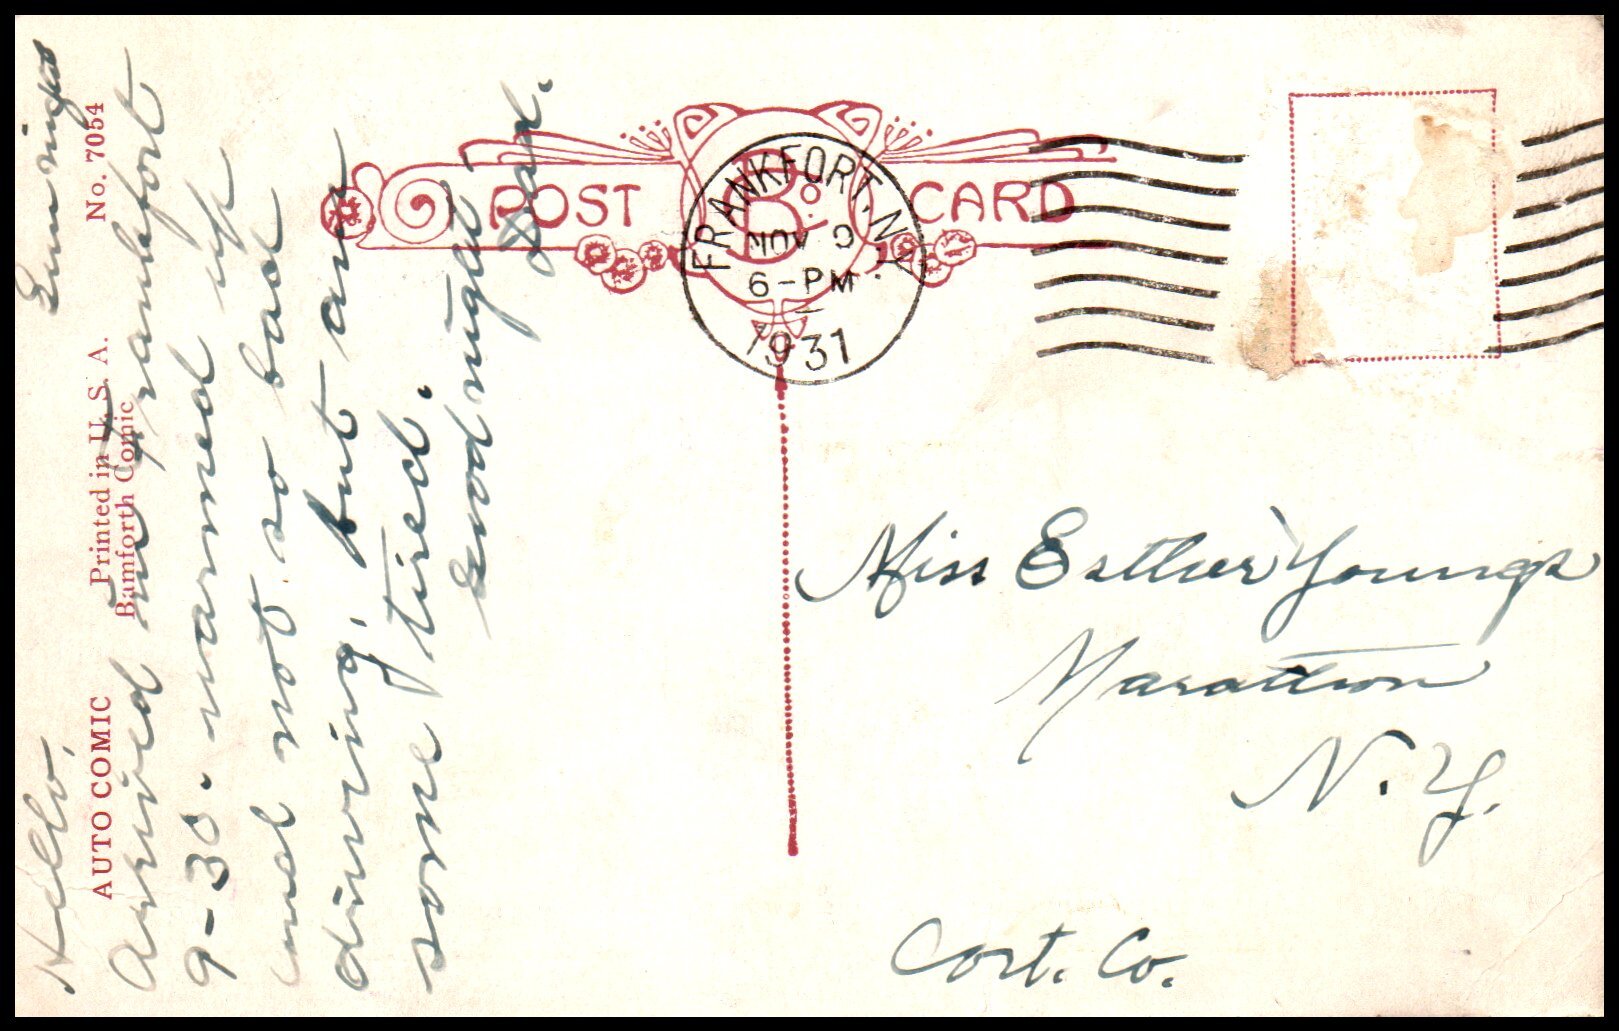 AUTO COMIC Printed in U. S. A. No. 7054
Bamforth Comic
POST CARD
B. Co.
FRANKFORT, N.Y.
NOV 9
6-PM
1931
Hello,
Arrived in Frankfort
9-30. warmed up
and not so bad
driving, but am
some tired.
Good night
Miss Esther Youngs
Marathon
N. Y.
Cort. Co.